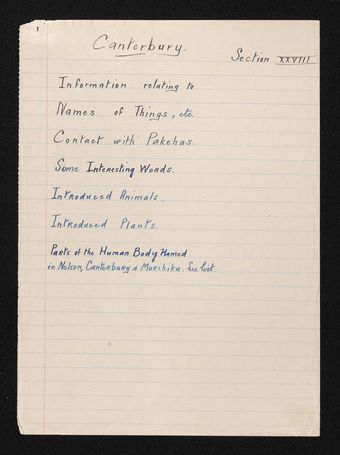 Canterbury.
Section XXVIII
Information relating to
Names of Things, etc.
Contact with Pakehas.
Some Interesting Words.
Introduced Animals.
Introduced Plants.
Parts of the Human Body Named
in Nelson, Canterbury & Murihiku. See list.